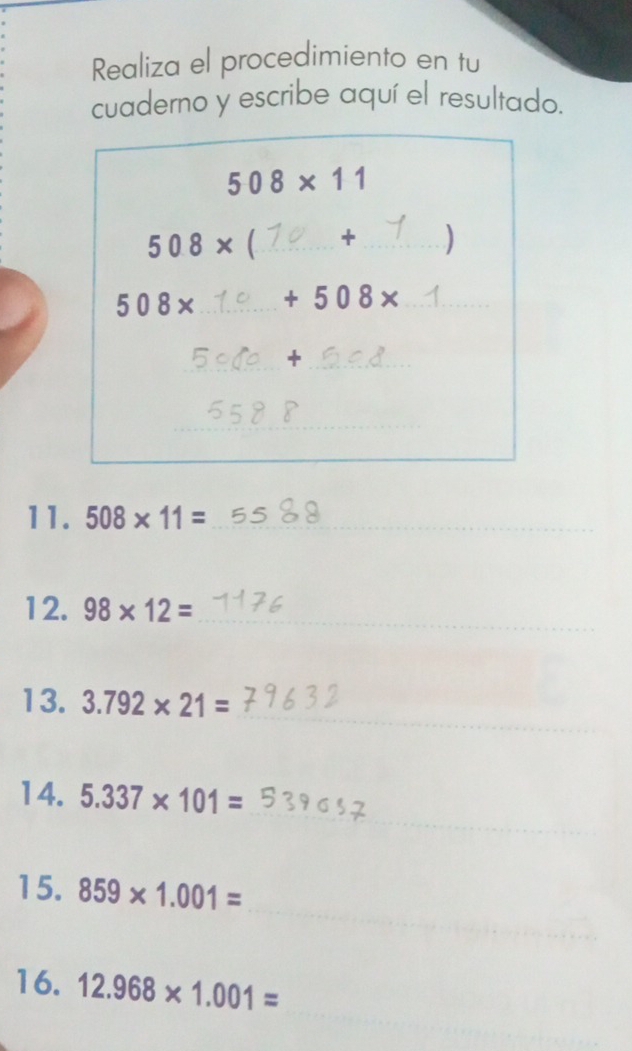 Realiza el procedimiento en tu
cuaderno y escribe aquí el resultado.
508 × 11
508 × ( 10 + 1 )
508 × 10 + 508 × 1
5080 + 508
5588
11. 508 × 11 = 5588
12. 98 × 12 = 1176
13. 3.792 × 21 = 79632
14. 5.337 × 101 = 539037
15. 859 × 1.001 =
16. 12.968 × 1.001 =